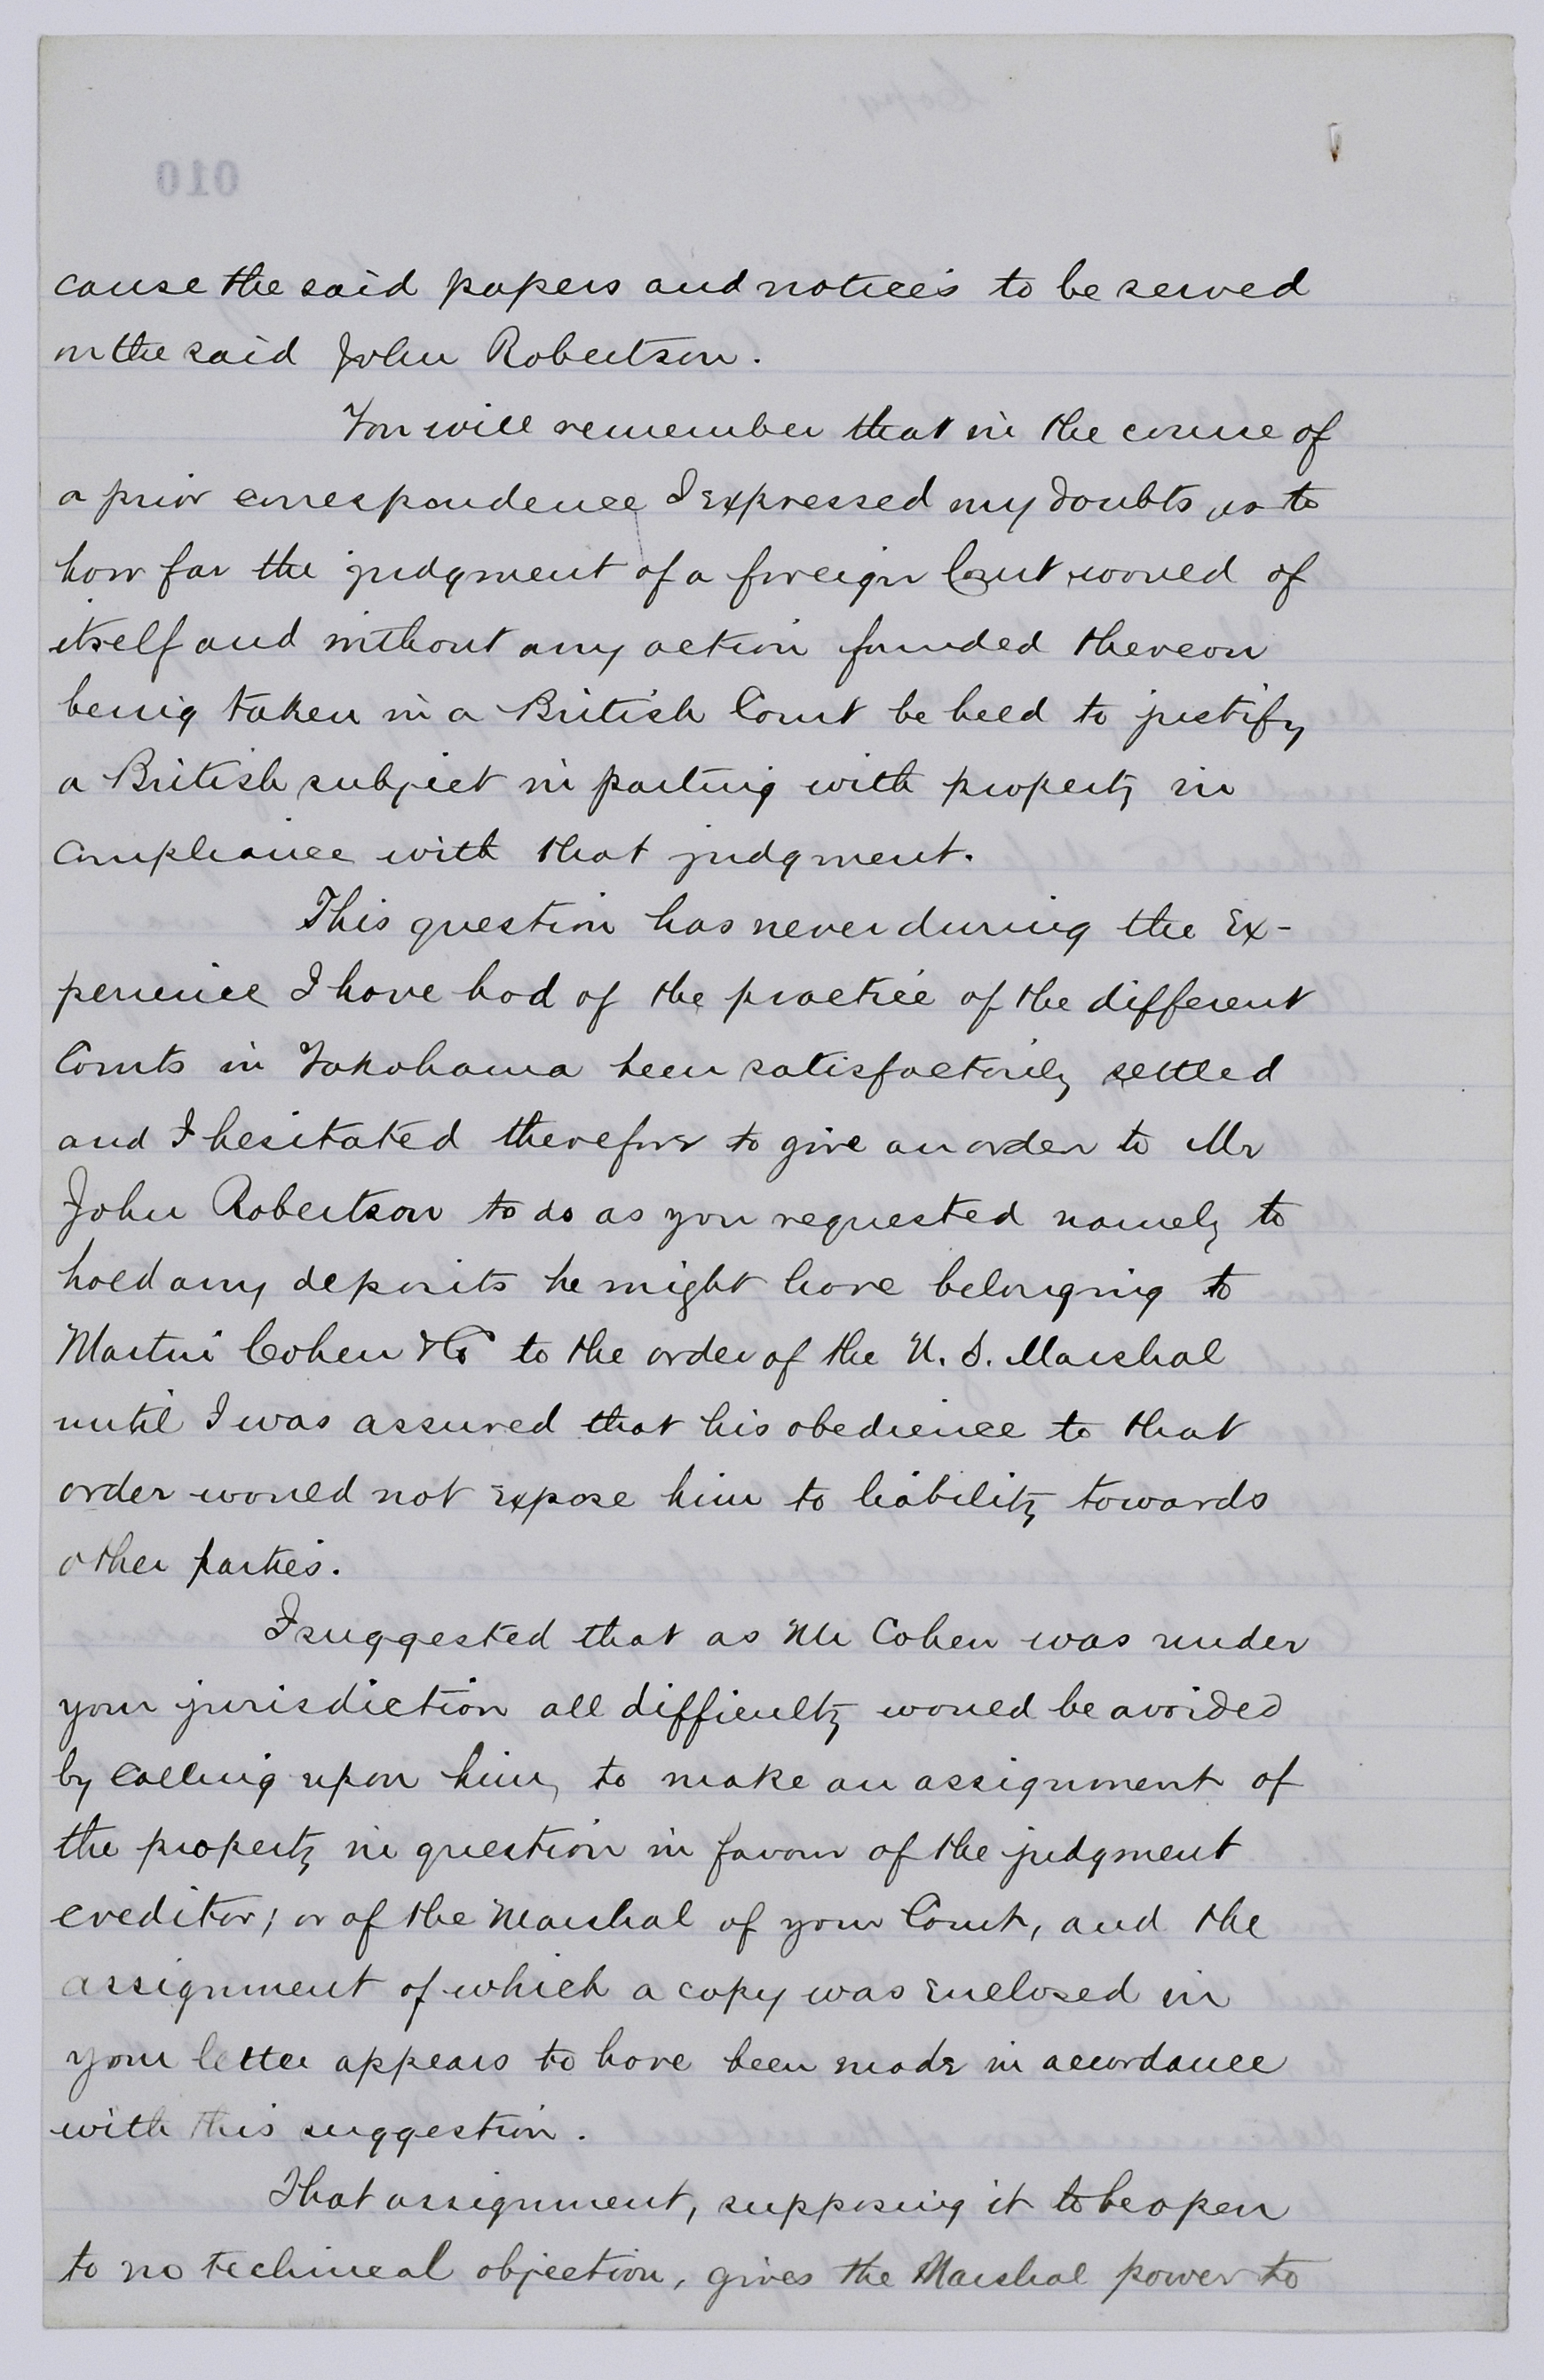 cause the said papers and notices to be served
on the said John Robertson.
You will remember that in the course of
a prior correspondence I expressed my doubts as to
how far the judgment of a foreign Court would of
itself and without any action founded thereon
being taken in a British Court be held to justify
a British subject in parting with property in
compliance with that judgment.
This question has never during the Ex-
perience I have had of the practice of the different
Courts in Yokohama been satisfactorily settled
and I hesitated therefore to give an order to Mr
John Robertson to do as you requested namely to
hold any deposits he might have belonging to
Martin Cohen & Co to the order of the U. S. Marshal
until I was assured that his obedience to that
order would not expose him to liability towards
other parties.
I suggested that as Mr Cohen was under
your jurisdiction all difficulty would be avoided
by calling upon him, to make an assignment of
the property in question in favour of the judgment
creditor; or of the Marshal of your Court, and the
assignment of which a copy was enclosed in
your letter appears to have been made in accordance
with this suggestion.
That assignment, supposing it to be open
to no technical objection, gives the Marshal power to